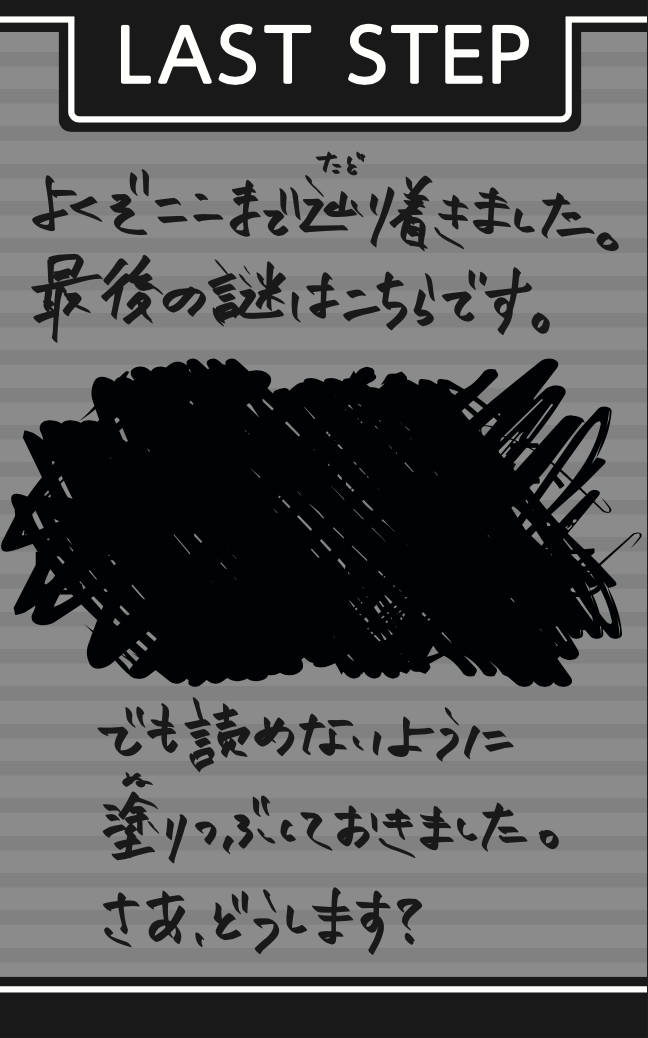 LAST STEP
たど
よくぞここまで辿り着きました。
最後の謎はこちらです。
でも読めないように
ぬ
塗りつぶしておきました。
さあ、どうします?